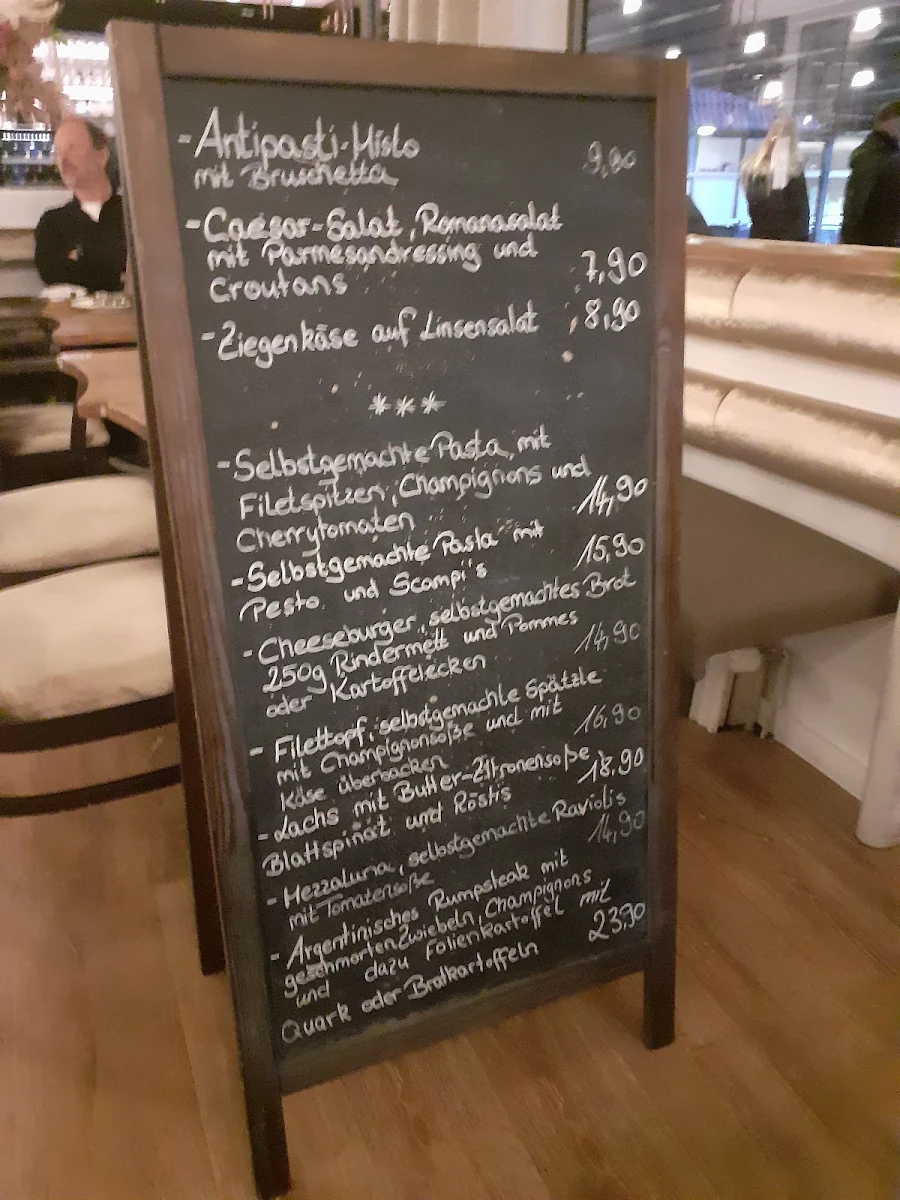 - Antipasti-Misto 9,90
mit Bruschetta
- Caesar-Salat, Romanasalat
mit Parmesandressing und 7,90
Croutans
- Ziegenkäse auf Linsensalat 8,90
***
- Selbstgemachte Pasta, mit
Filetspitzen, Champignons und 14,90
Cherrytomaten
- Selbstgemachte Pasta mit 15,90
Pesto und Scampi's
- Cheeseburger, selbstgemachtes Brot
250g Rindermett und Pommes 14,90
oder Kartoffelecken
- Filettopf, selbstgemachte Spätzle
mit Champignonsoße und mit 16,90
Käse überbacken
- Lachs mit Butter-Zitronensoße 18,90
Blattspinat und Röstis
- Mezzaluna, selbstgemachte Raviolis 14,90
mit Tomatensoße
- Argentinisches Rumpsteak mit
geschmorten Zwiebeln, Champignons
und dazu Folienkartoffel mit 23,90
Quark oder Bratkartoffeln